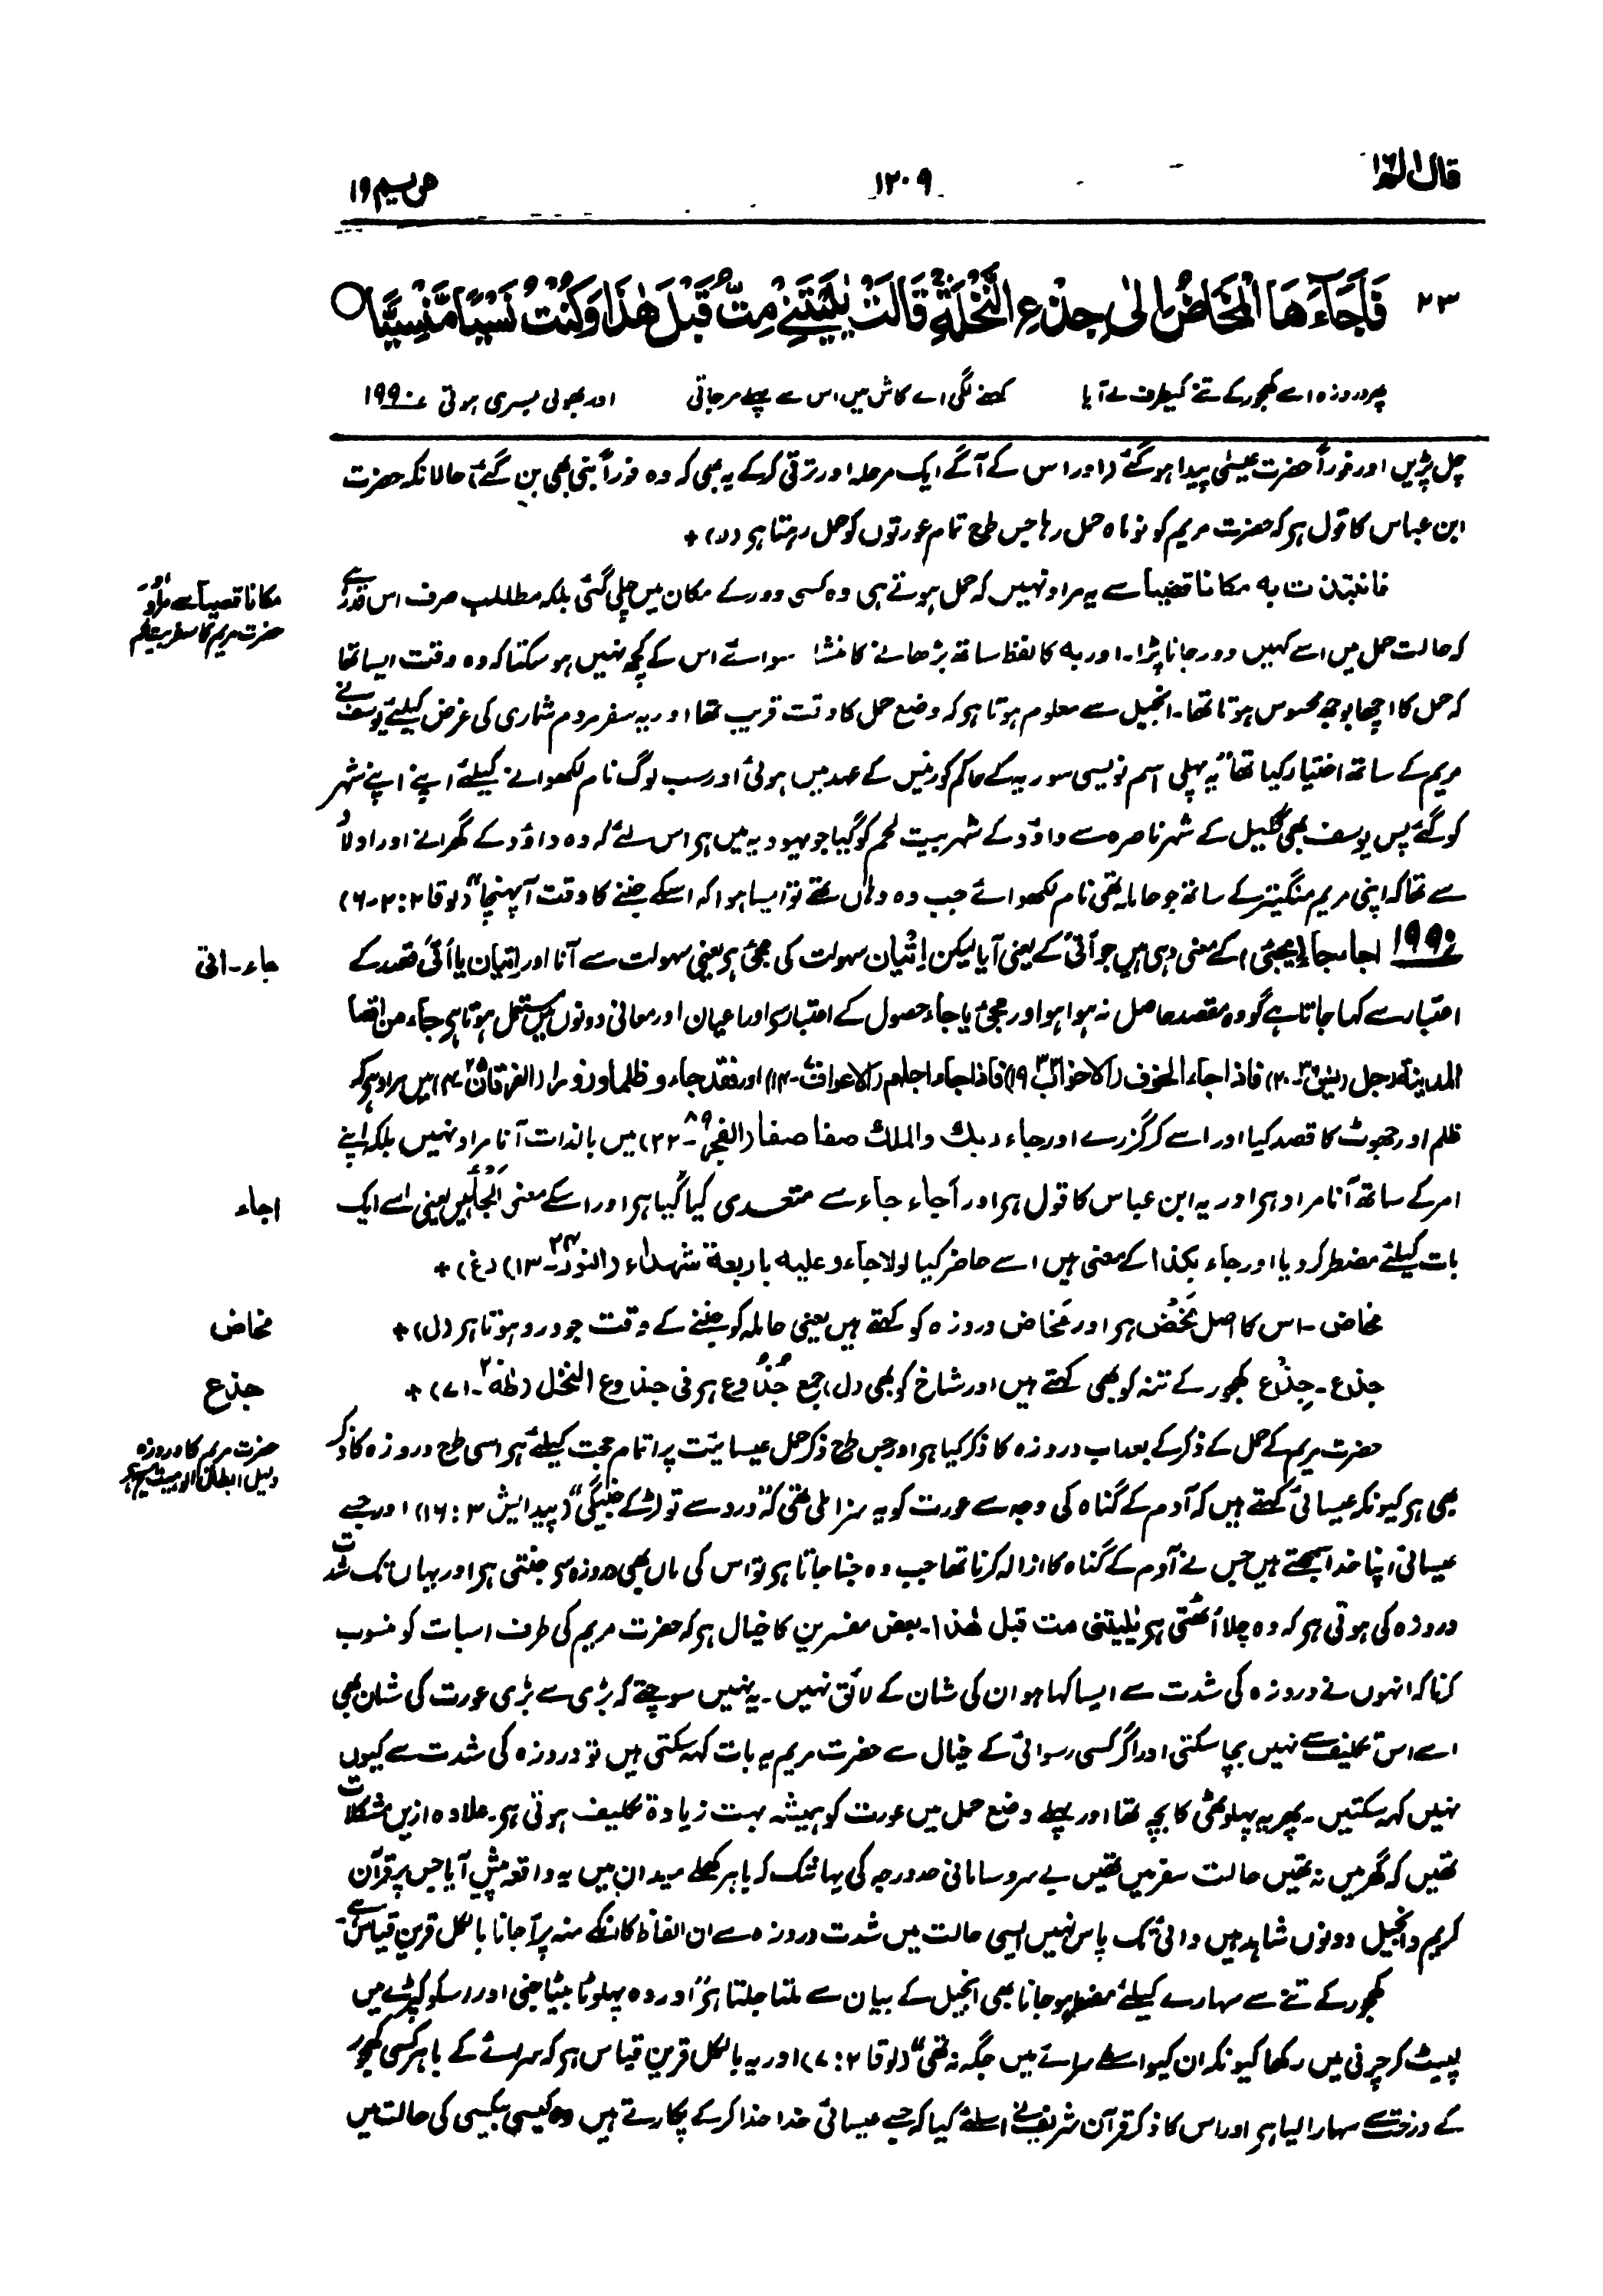 قال الم ١٦
١٢٠٩
مریم ١٩
٢٣ فَاَجَآءَهَا الْمَخَاضُ اِلٰى جِذْعِ النَّخْلَةِ ۚ قَالَتْ يٰلَيْتَنِيْ مِتُّ قَبْلَ هٰذَا وَكُنْتُ نَسْيًا مَّنْسِيًّا ○
پھر دردزہ اسے کھجور کے تنے کیطرف لے آیا کہنے لگی اے کاش میں اس سے پہلے مرجاتی اور بھولی بسری ہوتی ١٩٩٠
چل پڑیں اور فوراً حضرت عیسٰی پیدا ہوگئے (اور اس کے آگے ایک مرحلہ اور ترقی کرکے یہ بھی کہ وہ فوراً نبی بھی بن گئے) حالانکہ حضرت
ابن عباس کا قول ہر کہ حضرت مریم کو نو ماہ حمل رہا جس طرح تمام عورتوں کو حمل رہتا ہر (ر) +
فانتبذت به مکانا قصیا سے یہ مراد نہیں کہ حمل ہوتے ہی وہ کسی دور کے مکان میں چلی گئی بلکہ مطلب صرف اس قدر ہے
مکانا قصیا سے مراد اور
حضرت مریم کا سفر بیت لحم
کہ حالت حمل میں اسے کہیں دور جانا پڑا۔ اور به کا لفظ ساتھ بڑھانے کا منشا سوائے اس کے کچھ نہیں ہو سکتا کہ وہ وقت ایسا تھا
کہ حمل کا اچھا بوجھ محسوس ہوتا تھا۔ انجیل سے معلوم ہوتا ہر کہ وضع حمل کا وقت قریب تھا اور یہ سفر مردم شماری کی غرض کیلئے یوسف نے
مریم کے ساتھ اختیار کیا تھا "یہ پہلی اسم نویسی سوریہ کے حاکم کورنیس کے عہد میں ہوئی اور سب لوگ نام لکھوانے کیلئے اپنے اپنے شہر
کو گئے پس یوسف بھی گلیل کے شہر ناصرہ سے داؤد کے شہر بیت لحم کو گیا جو یہودیہ میں ہر اس لئے کہ وہ داؤد کے گھرانے اور اولاد
سے تھا کہ اپنی مریم منگیتر کے ساتھ جو حاملہ تھی نام لکھوائے جب وہ وہاں تھے تو ایسا ہوا کہ اسکے جننے کا وقت آپہنچا" (لوقا ٢:٢-٦)
١٩٩٠ اجاء۔ جاء (یجئ) کے معنی وہی ہیں جو أتی کے یعنی آیا لیکن إتیان سہولت کی مجئ ہر یعنی سہولت سے آنا اور اتیان یا أتی قصد کے
جاء۔ اتی
اعتبار سے کہا جاتا ہے گو وہ مقصد حاصل نہ ہوا ہو اور مجئ یا جاء حصول کے اعتبار سے اور اعیان اور معانی دونوں میں مستعمل ہوتا ہر جاء من اقصا
المدینة رجل (یٰسٓ-٢٠) فاذا جاء الخوف (الاحزاب-١٩) فاذا جاء اجلهم (الاعراف-) اور فقد جاءو ظلما وزورا (الفرقان-٤) میں مراد ہر کہ
ظلم اور جھوٹ کا قصد کیا اور اسے کر گزرے اور جاء ربك والملك صفا صفا (الفجر ٨٩-٢٢) میں بالذات آنا مراد نہیں بلکہ اپنے
امر کے ساتھ آنا مراد ہر اور یہ ابن عباس کا قول ہر اور أجاء جاء سے متعدی کیا گیا ہر اور اسکے معنی ألجأ ہیں یعنی اسے ایک
اجاء
بات کیلئے مضطر کر دیا اور جاء بکذا کے معنی ہیں اسے حاضر کیا لولا جاءو علیه باربعة شهداء (النور ٢٤-١٣) (غ) +
مخاض۔ اس کا اصل مَخْض ہر اور مَخاض دردزہ کو کہتے ہیں یعنی حاملہ کو جننے کے وقت جو درد ہوتا ہر (ل) +
مخاض
جذع۔ جِذْع کھجور کے تنہ کو بھی کہتے ہیں اور شاخ کو بھی (ل) جمع جُذُوع ہر فی جذوع النخل (طٰهٰ ٢٠-٧١) +
جذع
حضرت مریم کے حمل کے ذکر کے بعد اب دردزہ کا ذکر کیا ہر اور جس طرح ذکر حمل عیسائیت پر اتمام حجت کیلئے ہر اسی طرح دردزہ کا ذکر
حضرت مریم کا دردزہ
دلیل ابطال الوہیت مسیح ہر
بھی ہر کیونکہ عیسائی کہتے ہیں کہ آدم کے گناہ کی وجہ سے عورت کو یہ سزا ملی تھی کہ "درد سے تو لڑکے جنیگی" (پیدایش ٣: ١٦) اور جسے
عیسائی اپنا خدا سمجھتے ہیں جس نے آدم کے گناہ کا ازالہ کرنا تھا جب وہ جنا جاتا ہر تو اس کی ماں بھی دردزہ سے جنتی ہر اور یہاں تک شدت
دردزہ کی ہوتی ہر کہ وہ چلا اُٹھتی ہر یٰلیتنی مت قبل هٰذا۔ بعض مفسرین کا خیال ہر کہ حضرت مریم کی طرف اسبات کو منسوب
کرنا کہ انہوں نے دردزہ کی شدت سے ایسا کہا ہو ان کی شان کے لائق نہیں۔ یہ نہیں سوچتے کہ بڑی سے بڑی عورت کی شان بھی
اسے اس تکلیف سے نہیں بچا سکتی اور اگر کسی رسوائی کے خیال سے حضرت مریم یہ بات کہہ سکتی ہیں تو دردزہ کی شدت سے کیوں
نہیں کہہ سکتیں۔ پھر یہ پہلوٹھی کا بچہ تھا اور پہلے وضع حمل میں عورت کو ہمیشہ بہت زیادة تکلیف ہوتی ہر۔ علاوہ ازیں مشکلات
تھیں کہ گھر میں نہ تھیں حالت سفر میں تھیں بے سروسامانی حد درجہ کی یہانتک کہ باہر کھلے میدان میں یہ واقعہ پیش آیا جس پر قرآن
کریم و انجیل دونوں شاہد ہیں دائی تک پاس نہیں ایسی حالت میں شدت دردزہ سے ان الفاظ کا انکے منہ پر آجانا بالکل قرین قیاس ہے۔
کھجور کے تنے سے سہارے کیلئے مضطر ہو جانا بھی انجیل کے بیان سے ملتا جلتا ہر "اور وہ پہلوٹا بیٹا جنی اور اسکو کپڑے میں
لپیٹ کر چرنی میں رکھا کیونکہ ان کیواسطے سرائے میں جگہ نہ تھی" (لوقا ٢: ٧) اور یہ بالکل قرین قیاس ہر کہ سرائے کے باہر کسی کھجور
کے درخت سے سہارا لیا ہر اور اس کا ذکر قرآن شریف نے اسلئے کیا کہ جسے عیسائی خدا خدا کرکے پکارتے ہیں وہ کیسی بیکسی کی حالت میں